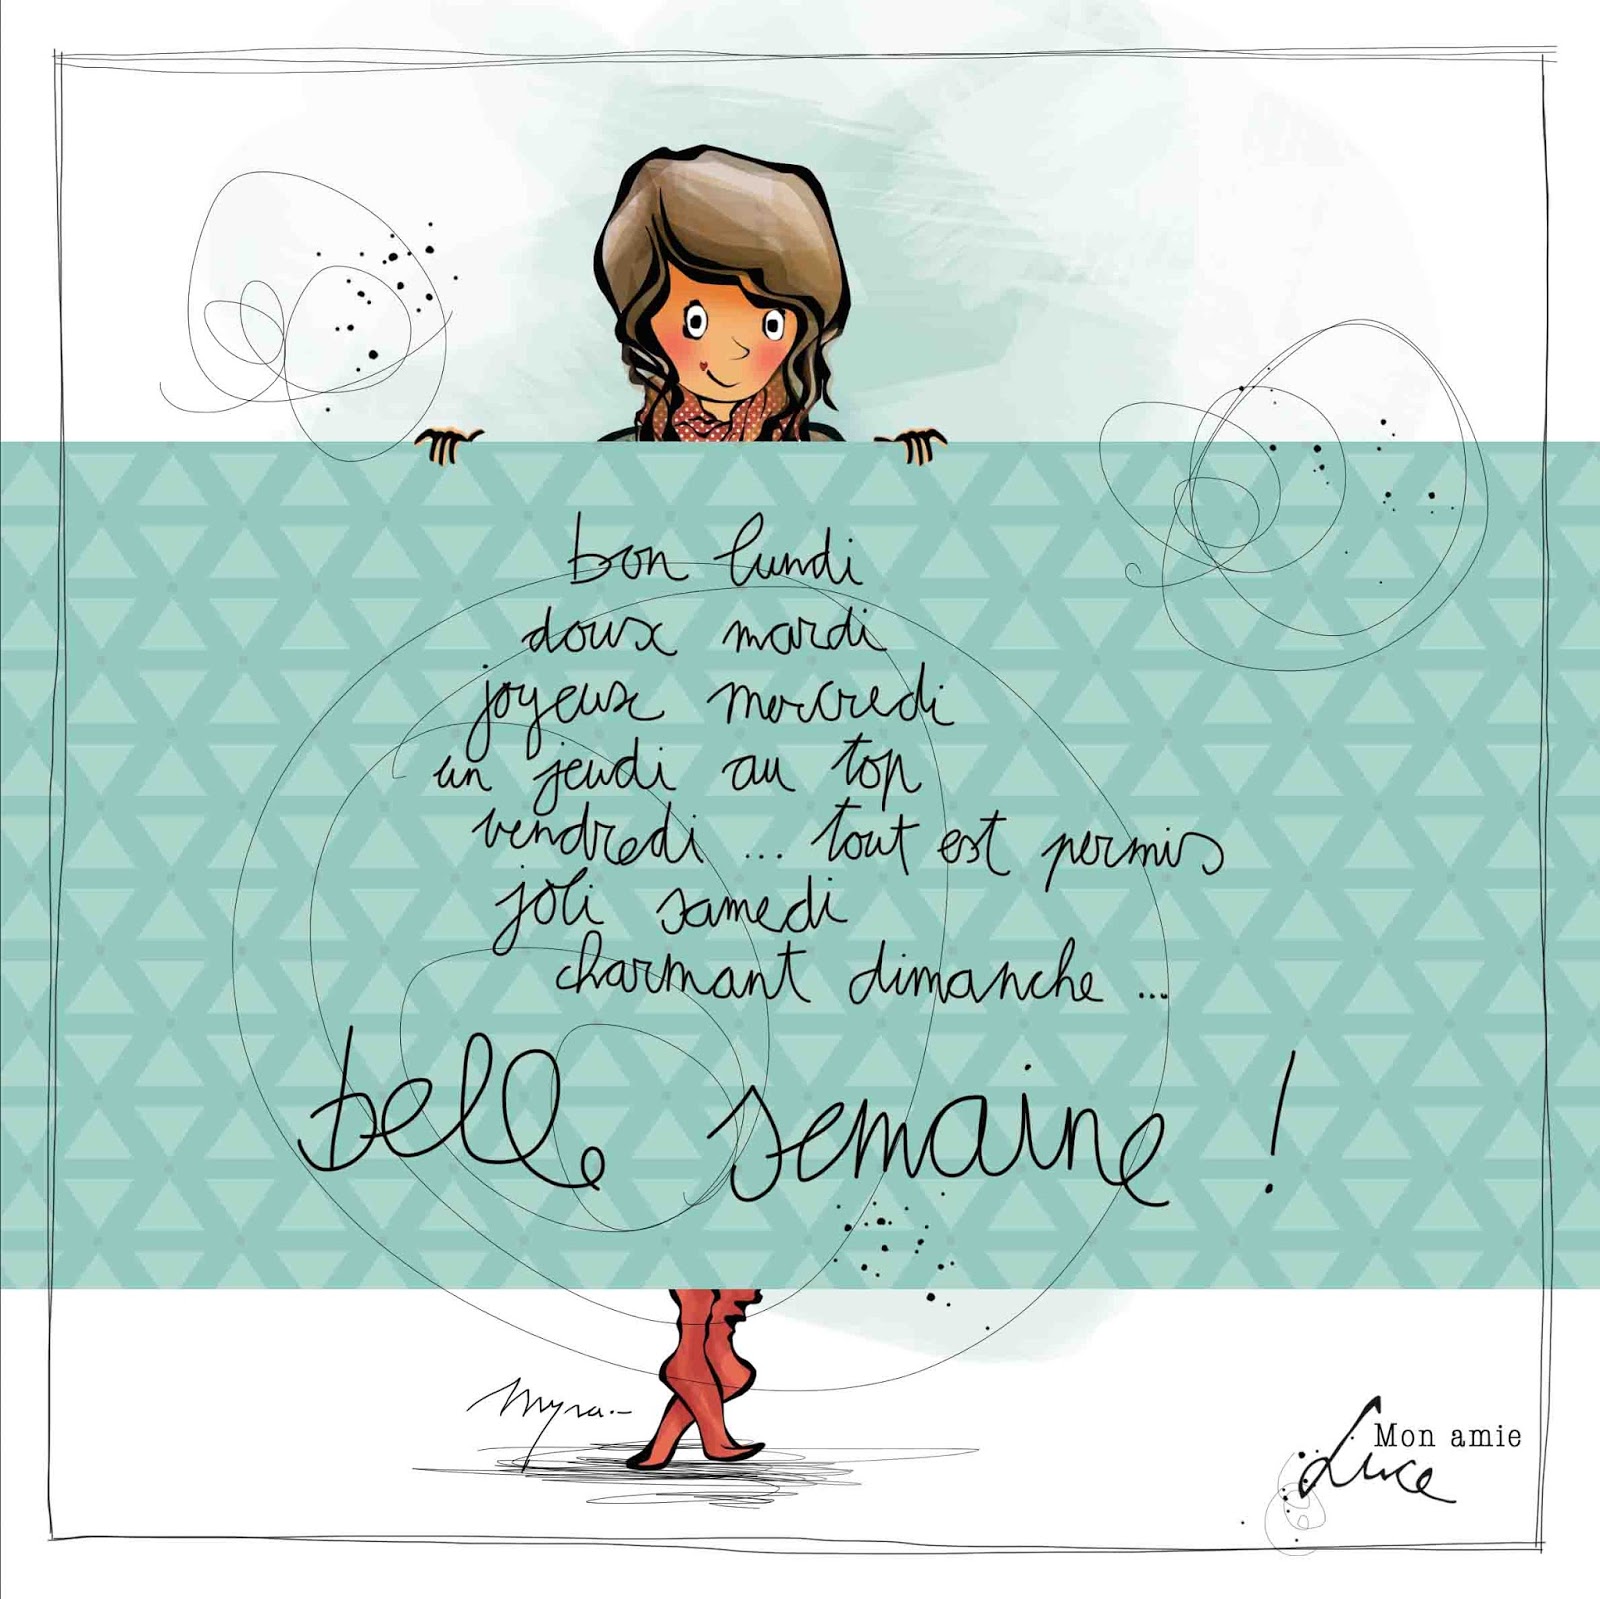 bon lundi
doux mardi
joyeux mercredi
un jeudi au top
vendredi ... tout est permis
joli samedi
charmant dimanche ...
belle semaine !
myra.-
Mon amie
Luce